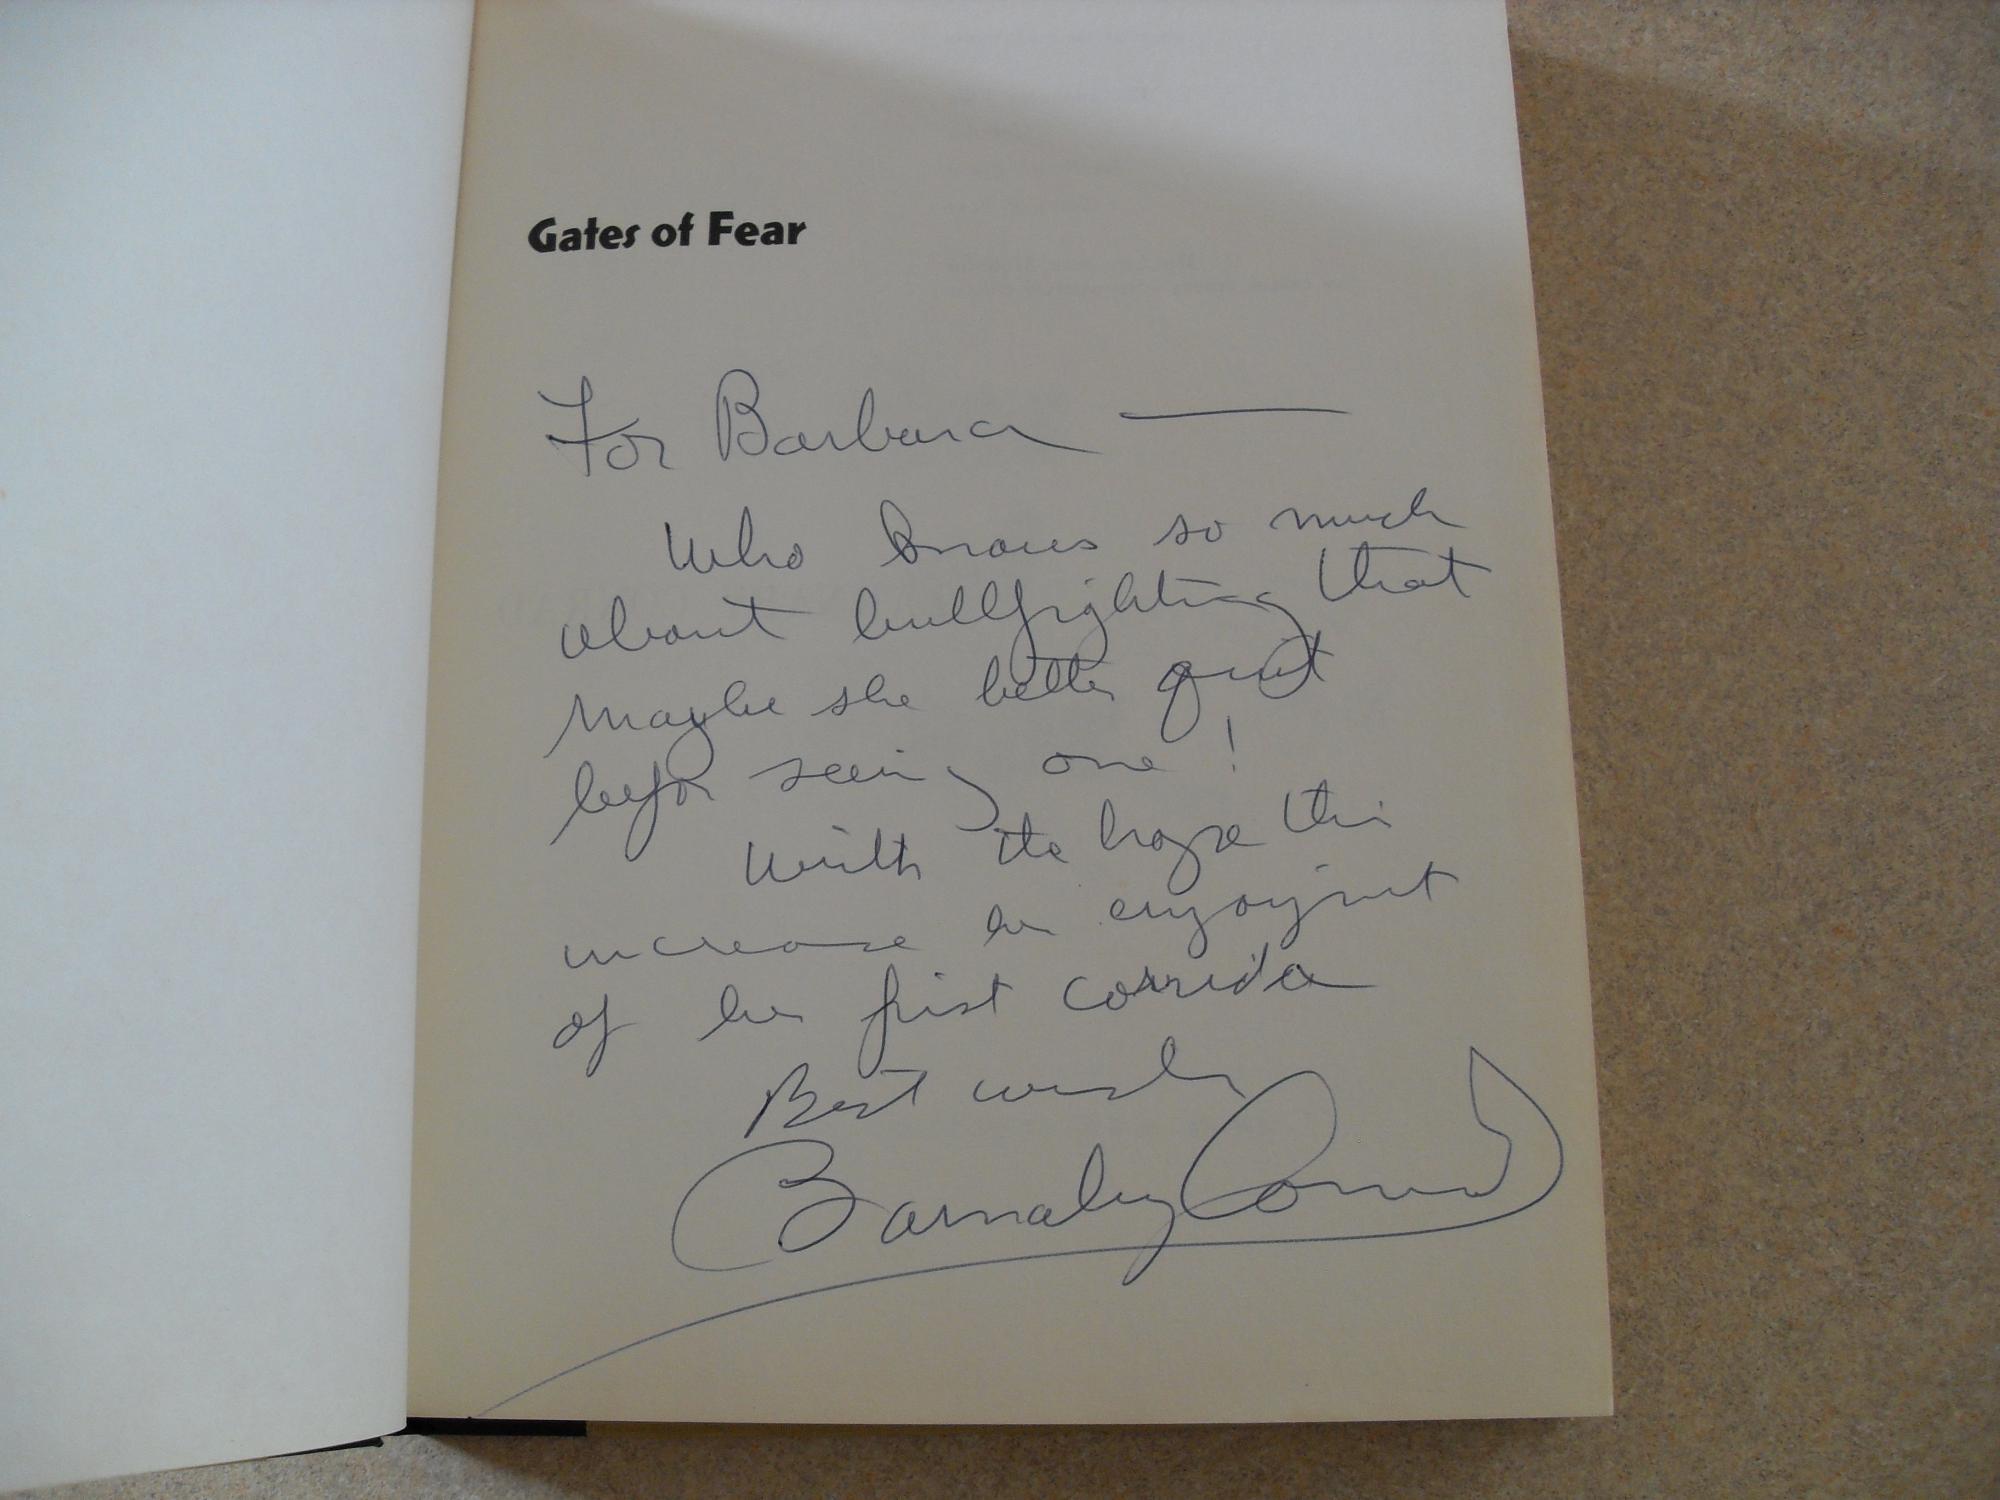 Gates of Fear
For Barbara —
Who knows so much
about bullfighting that
maybe she better quit
before seeing one!
With the hope this
increase her enjoyment
of her first corrida
Best wishes
Barnaby Conrad